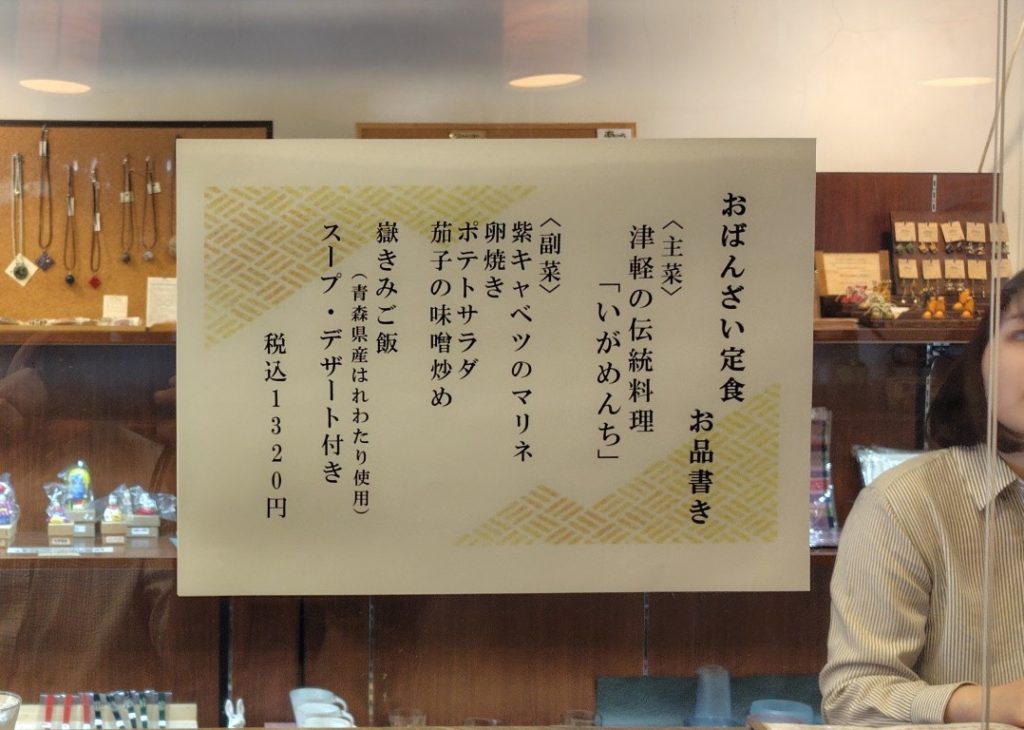 おばんざい定食
お品書き
〈主菜〉
津軽の伝統料理
「いがめんち」
〈副菜〉
紫キャベツのマリネ
卵焼き
ポテトサラダ
茄子の味噌炒め
嶽きみご飯
（青森県産はれわたり使用）
スープ・デザート付き
税込１３２０円